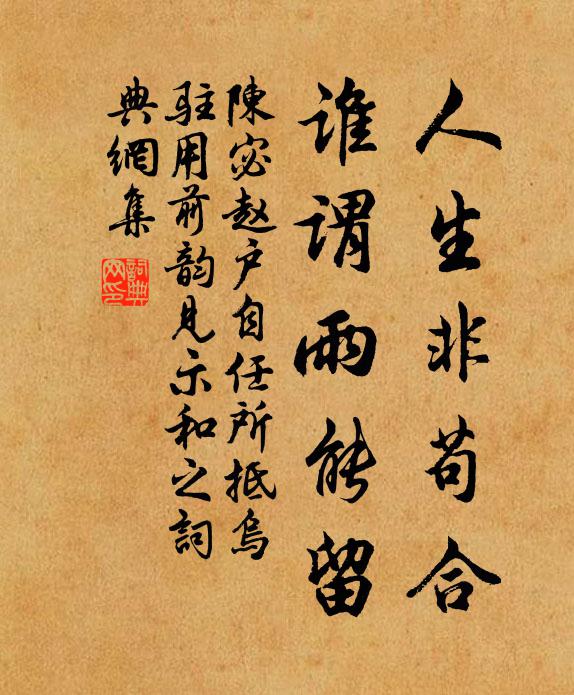 人生非苟合
誰謂雨能留
陳宓赵户自任所抵烏
駐用前韵見示和之詞
典網集
詞典網印